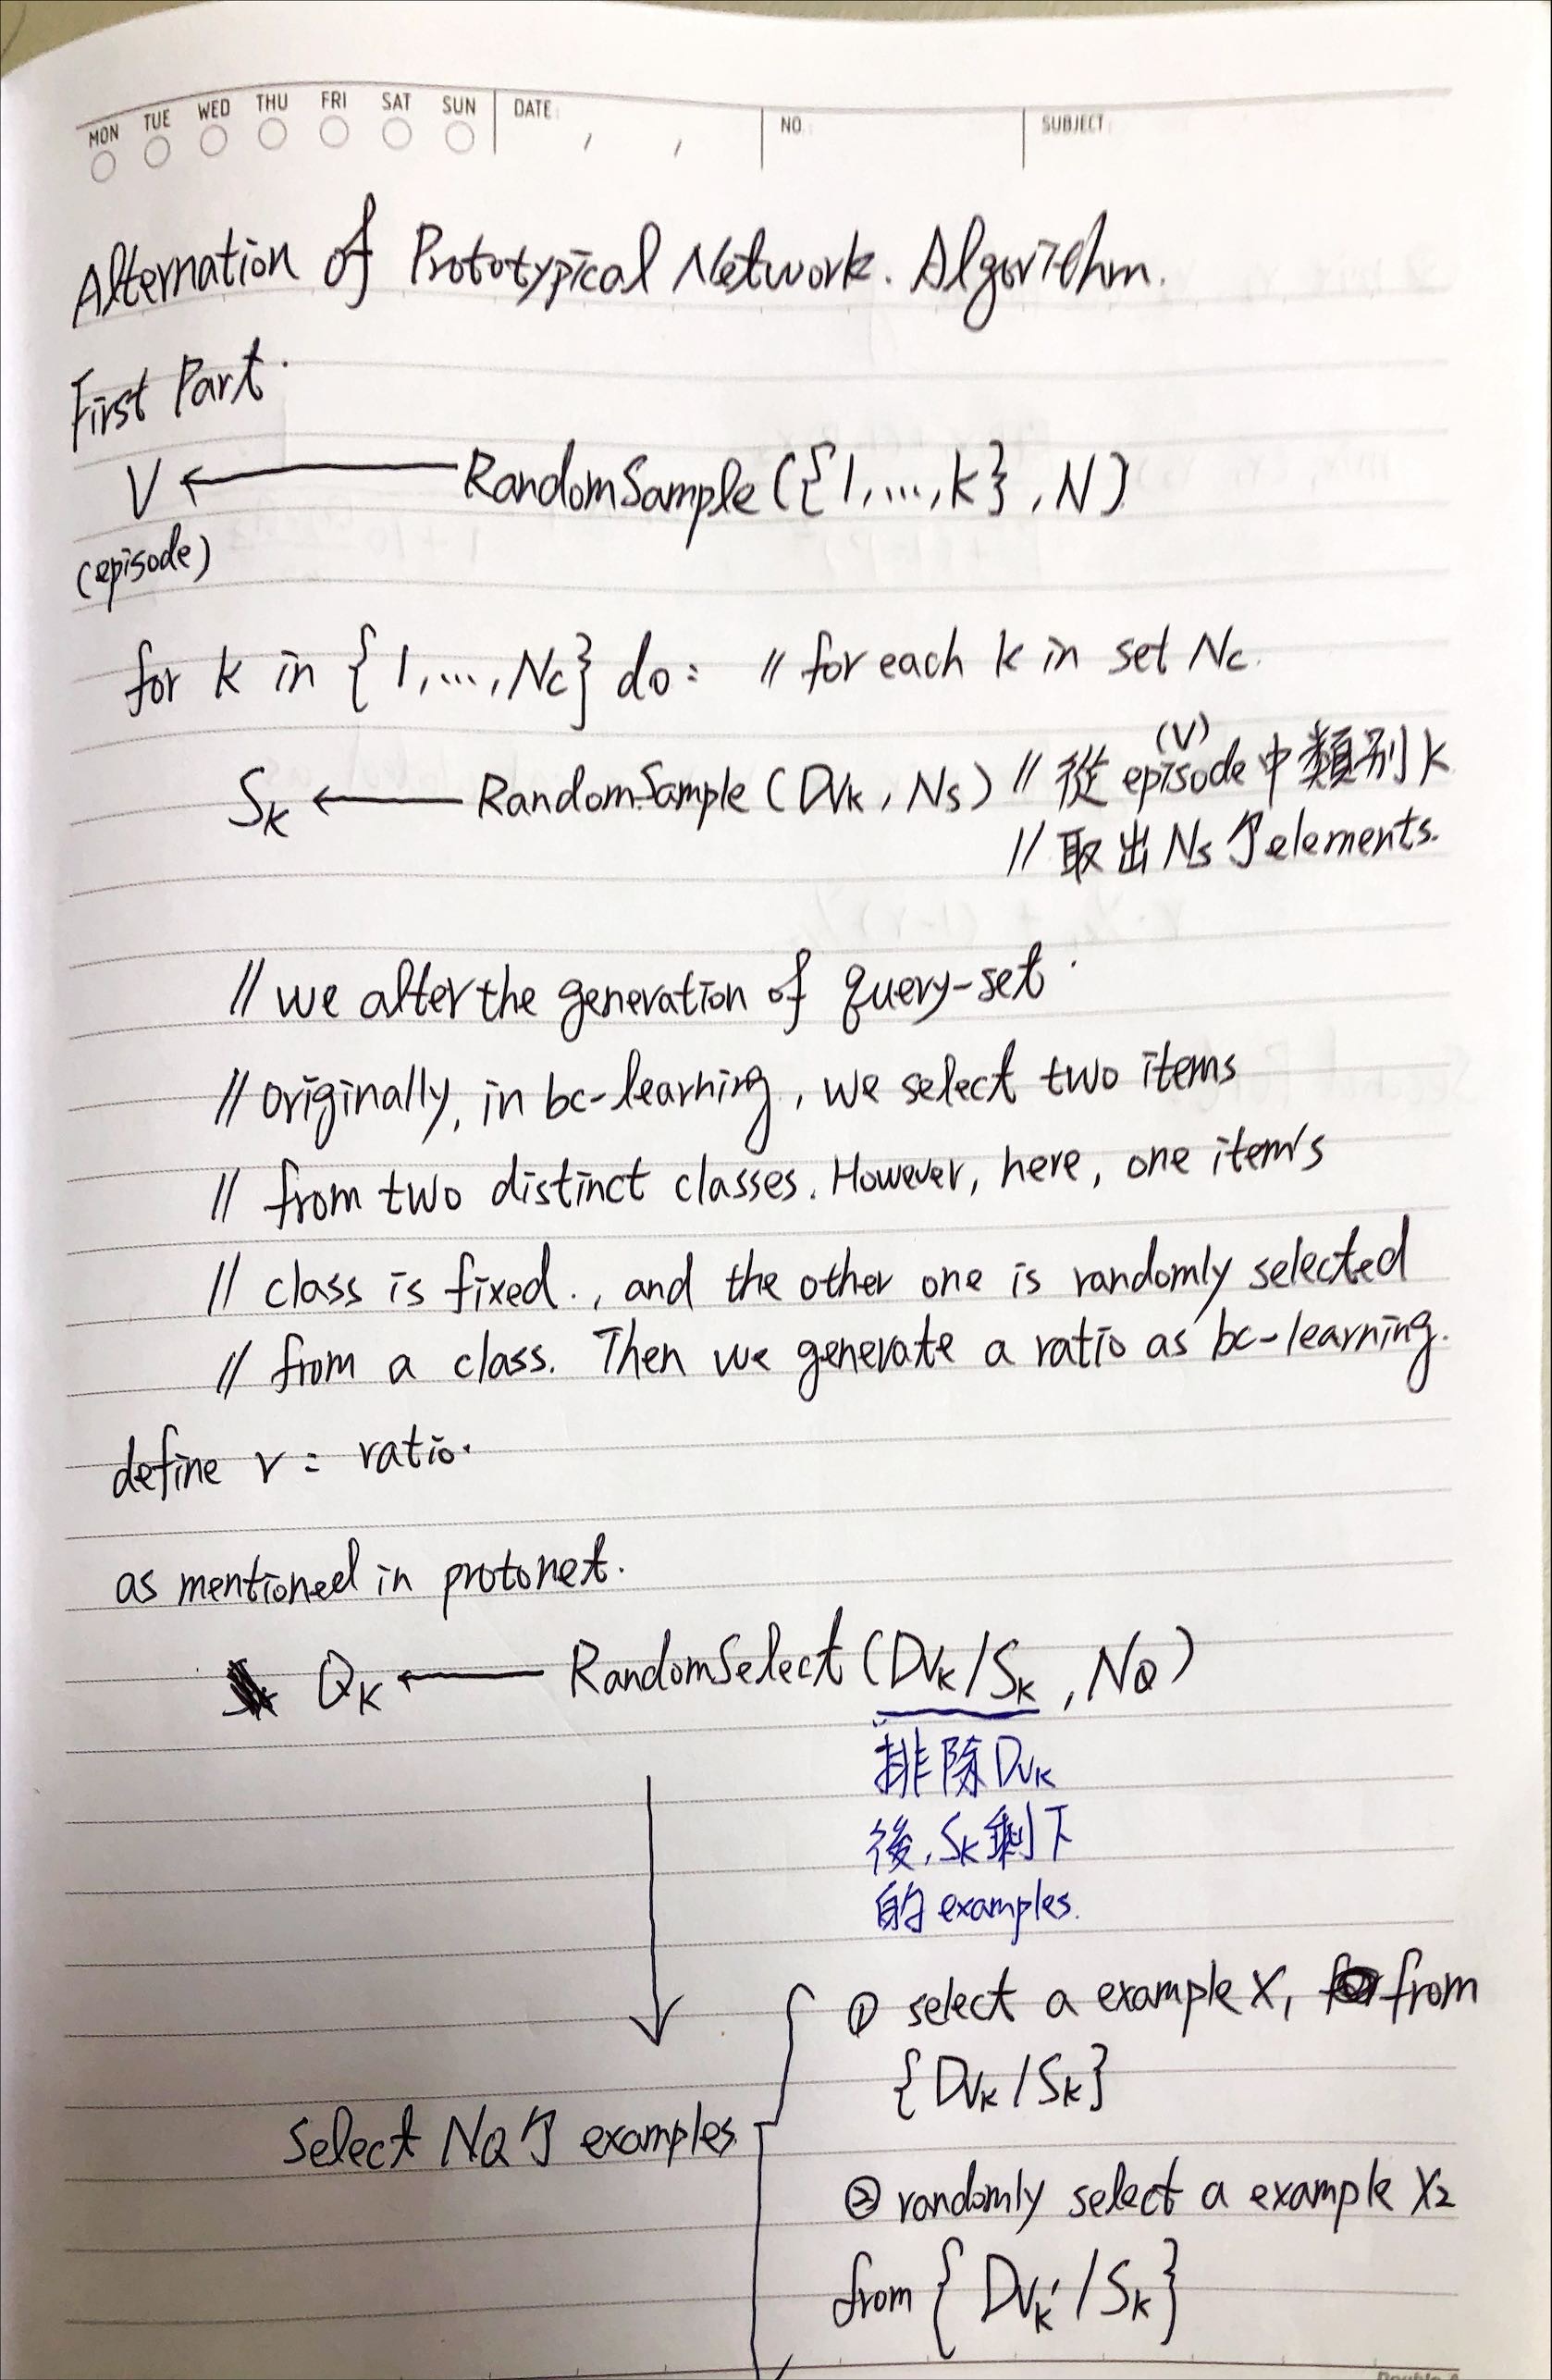 MON TUE WED THU FRI SAT SUN DATE: / / NO. SUBJECT:
Alternation of Prototypical Network. Algorithm.
First Part.
V ← RandomSample ({1,...,k}, N)
(episode)
for k in {1,...,Nc} do: // for each k in set Nc.
(V)
Sk ← RandomSample (DVk, Ns) // 從 episode 中類別 k
// 取出 Ns 个 elements.
// we alter the generation of query-set.
// originally, in bc-learning, we select two items
// from two distinct classes. However, here, one item's
// class is fixed., and the other one is randomly selected
// from a class. Then we generate a ratio as bc-learning.
define r = ratio.
as mentioned in protonet.
Qk ← RandomSelect (DVk/Sk, NQ)
排除 DVk
後, Sk 剩下
的 examples.
① select a example X1 from
{DVk/Sk}
Select NQ 个 examples
② randomly select a example X2
from {DVk'/Sk}
Double A